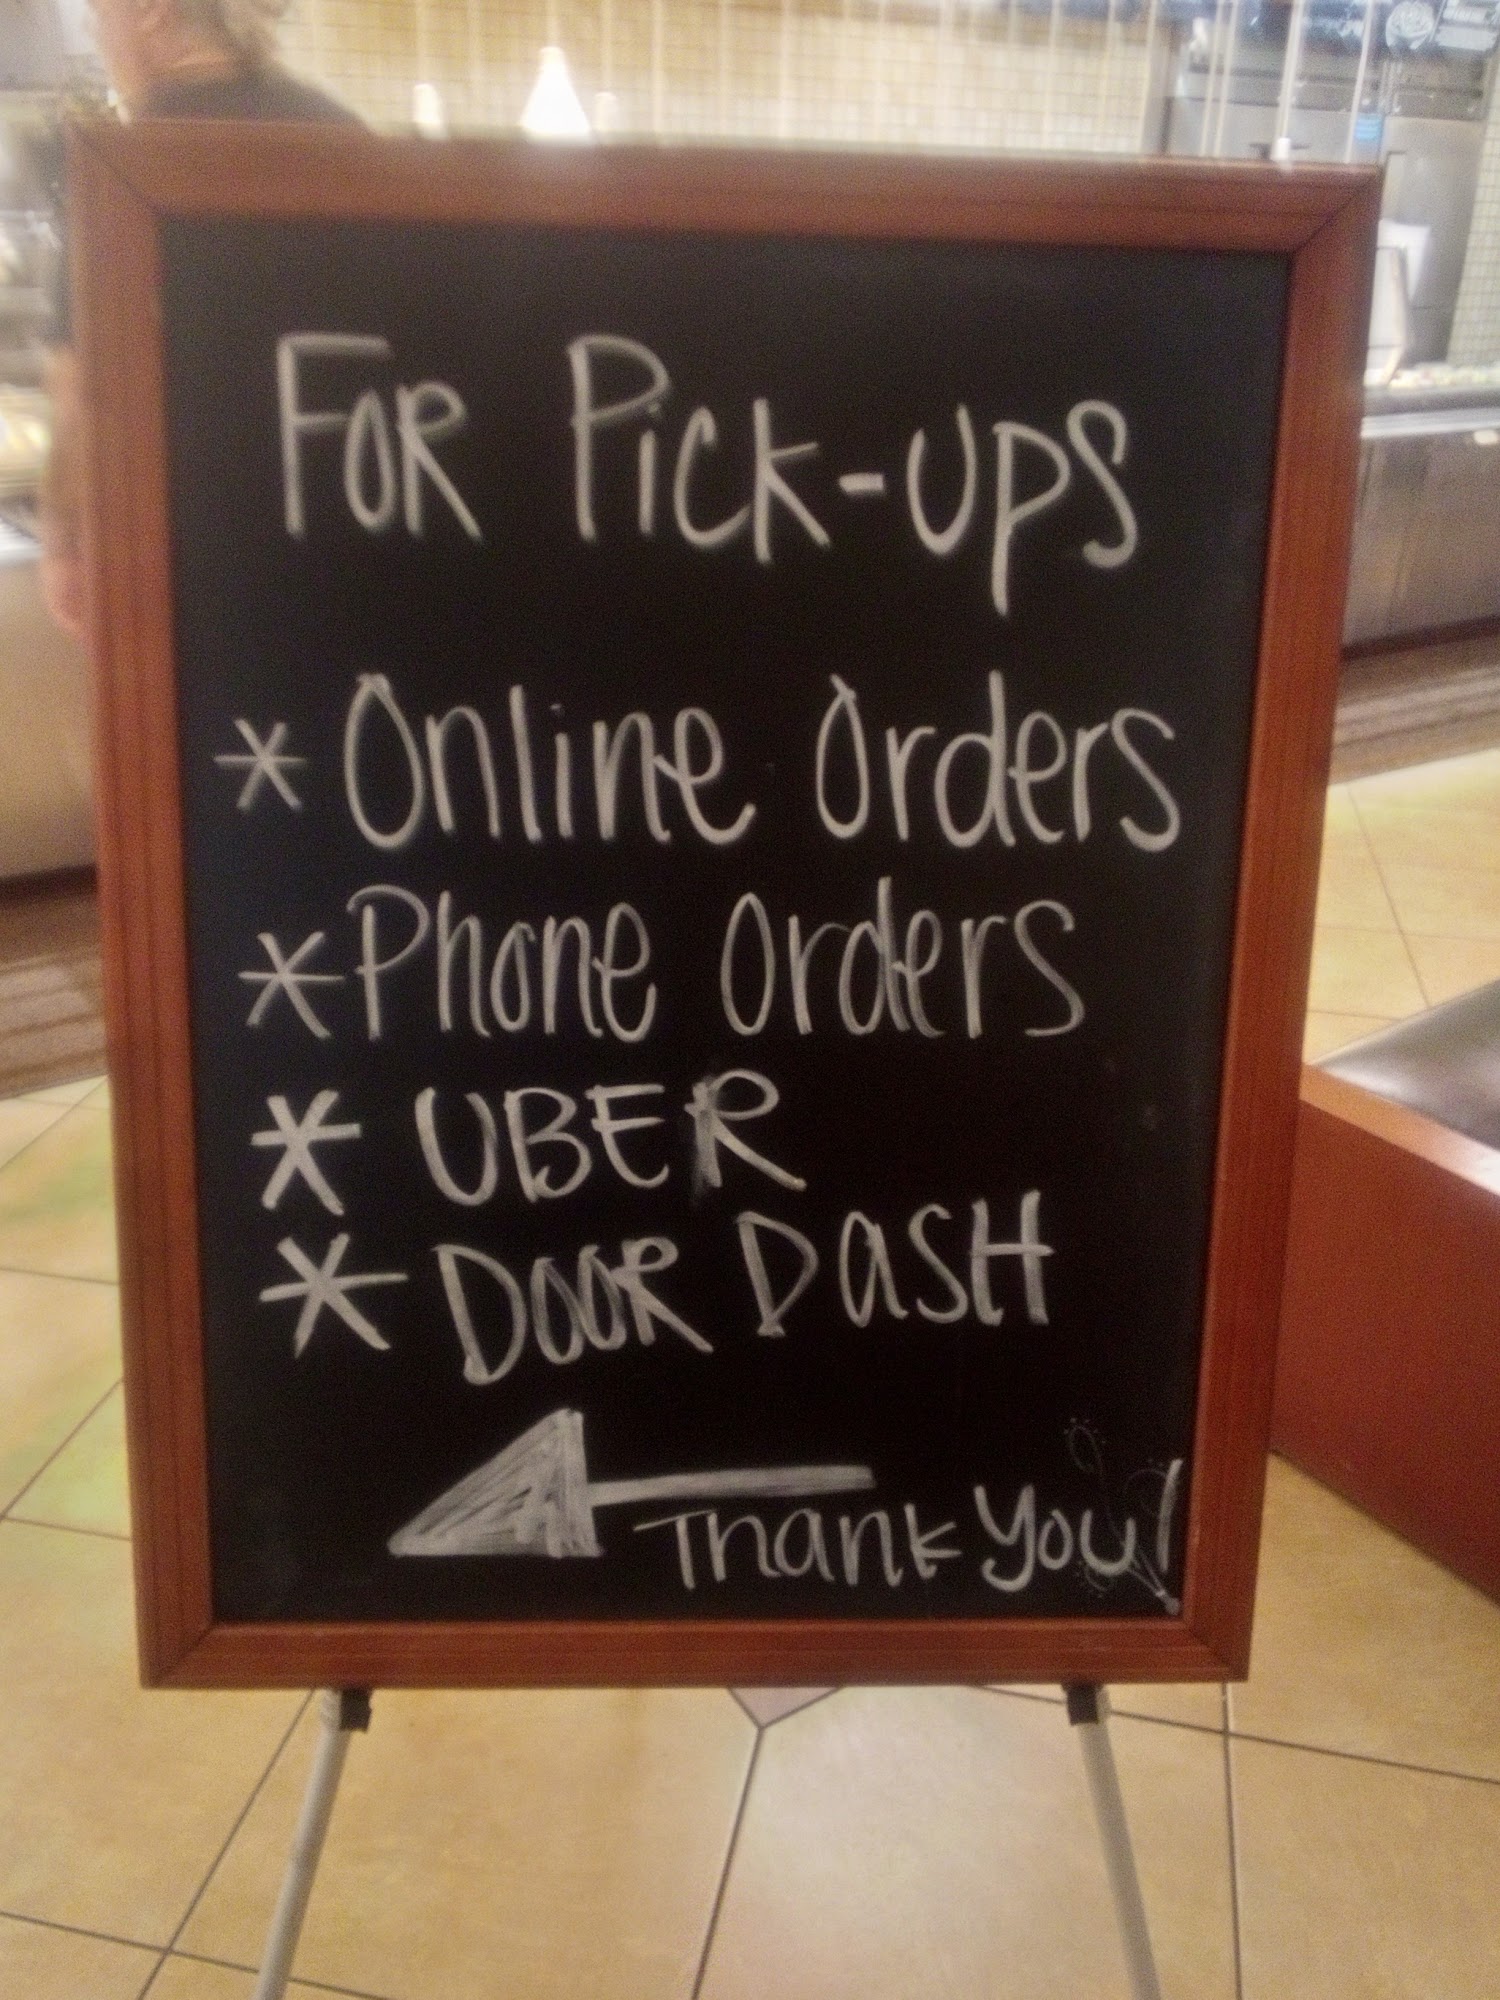 FOR PICK-UPS
* Online Orders
* Phone Orders
* UBER
* DOOR DASH
Thank you!